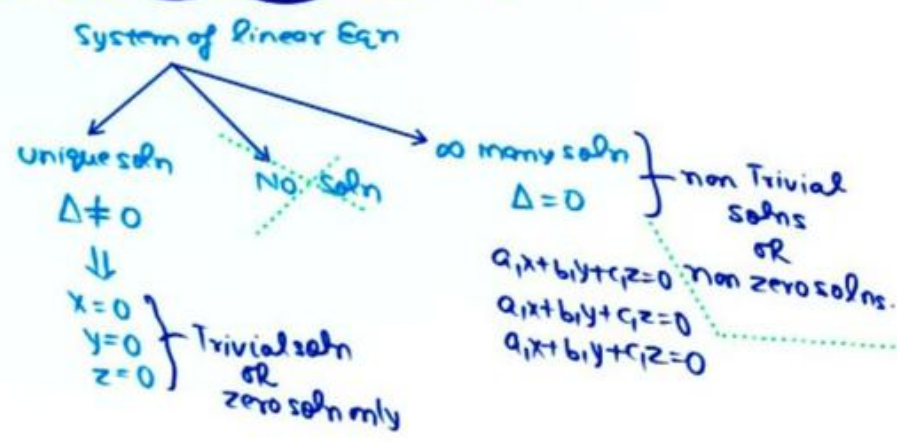 System of linear Eqn
unique soln
Δ ≠ 0
⇓
x=0
y=0
z=0
Trivial soln
OR
zero soln only
No Soln
∞ many soln
Δ = 0
non Trivial
solns
OR
non zero solns.
a₁x+b₁y+c₁z=0
a₁x+b₁y+c₁z=0
a₁x+b₁y+c₁z=0